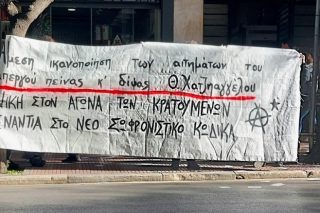 μεση ικανοποιηση των αιτηματων του
περγου πεινας κ' διψας Θ. Χατζηαγγελου
ΗΚΗ ΣΤΟΝ ΑΓΩΝΑ ΤΩΝ ΚΡΑΤΟΥΜΕΝΩΝ
ΕΝΑΝΤΙΑ ΣΤΟ ΝΕΟ ΣΩΦΡΟΝΙΣΤΙΚΟ ΚΩΔΙΚΑ